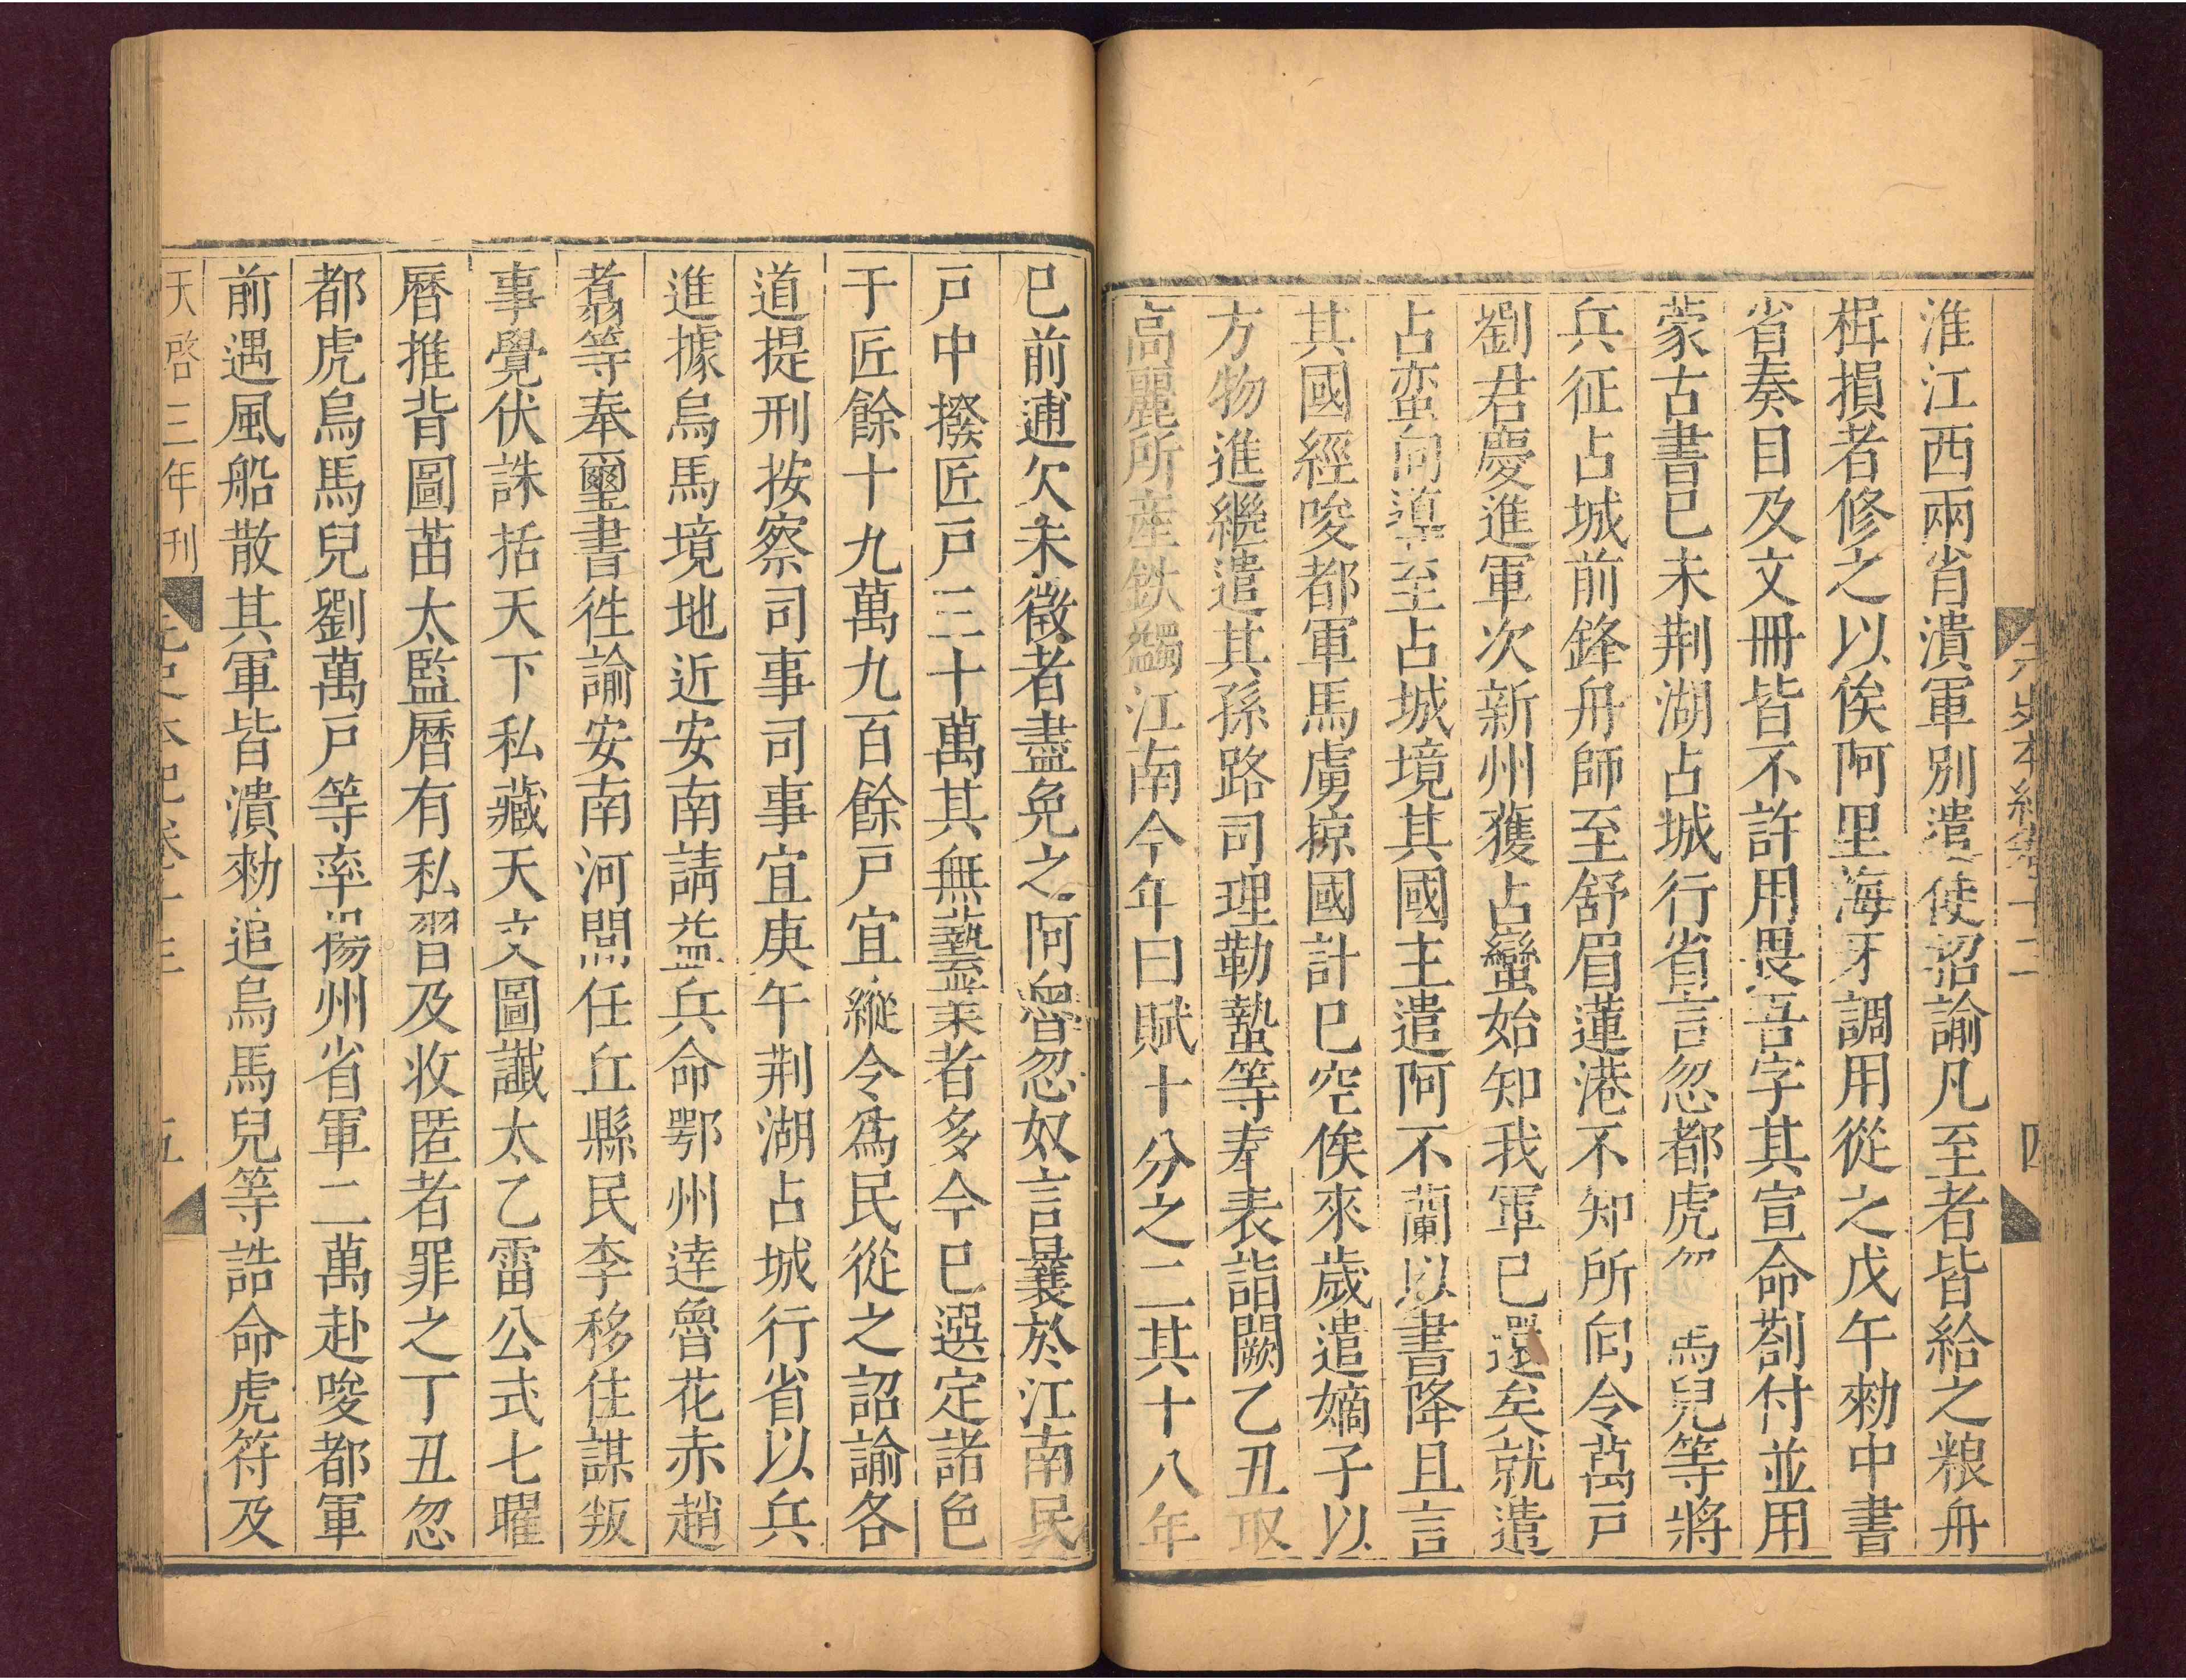 元史本紀卷十三 四
淮江西兩省潰軍別遣使招諭凡至者皆給之粮舟
楫損者修之以俟阿里海牙調用從之戊午勑中書
省奏目及文冊皆不許用畏吾字其宣命劄付並用
蒙古書巳未荆湖占城行省言忽都虎忽 馬兒等將
兵征占城前鋒舟師至舒眉蓮港不知所向令萬戸
劉君慶進軍次新州獲占蠻始知我軍已還矣就遣
占蛮向導至占城境其國主遣阿不蘭以書降且言
其國經唆都軍馬虜掠國計巳空俟來歲遣嫡子以
方物進繼遣其孫路司理勒蟄等奉表詣闕乙丑取
高麗所產鉄蠲江南今年田賦十分之二其十八年
巳前逋欠未徵者盡免之阿魯忽奴言曩於江南民
戸中撥匠戸三十萬其無藝業者多今巳選定諸色
于匠餘十九萬九百餘戸宜縱令爲民從之詔諭各
道提刑按察司事司事宜庚午荆湖占城行省以兵
進據烏馬境地近安南請益兵命鄂州達魯花赤趙
翥等奉璽書徃諭安南河間任丘縣民李移住謀叛
事覺伏誅括天下私藏天文圖讖太乙雷公式七曜
曆推背圖苗太監曆有私習及收匿者罪之丁丑忽
都虎烏馬兒劉萬戸等率揚州省軍二萬赴唆都軍
前遇風船散其軍皆潰勑追烏馬兒等誥命虎符及
天啓三年刊 元史本紀卷十三 五